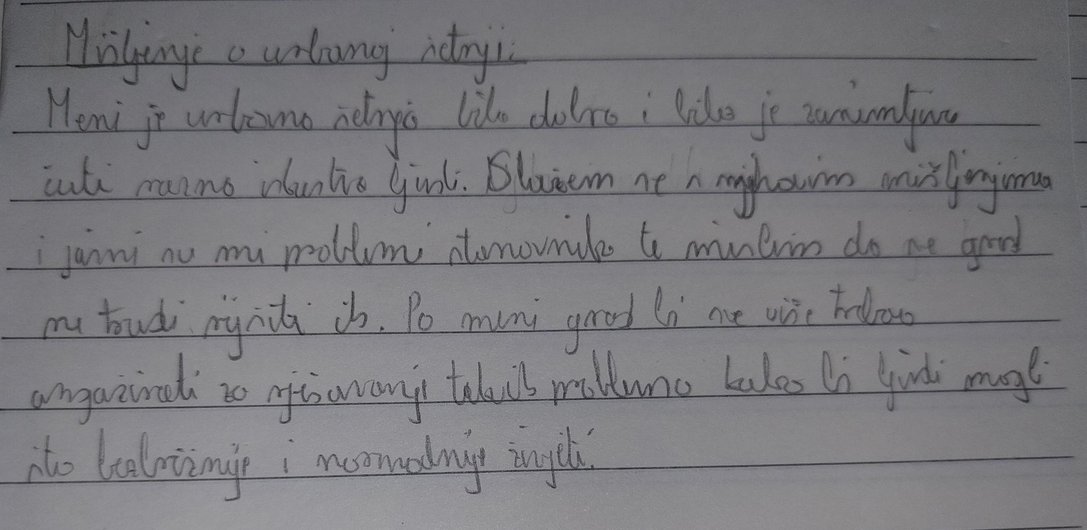 Mišljenje o urbanoj šetnji:
Meni je urbana šetnja bila dobra i bilo je zanimljivo
čuti razna iskustva ljudi. Slažem se s njihovim mišljenjima
i jasni su mi problemi stanovnika te mislim da se grad
ne trudi riješiti ih. Po meni grad bi se više trebao
angažirati za rješavanje takvih problema kako bi ljudi mogli
što bezbrižnije i normalnije živjeti.